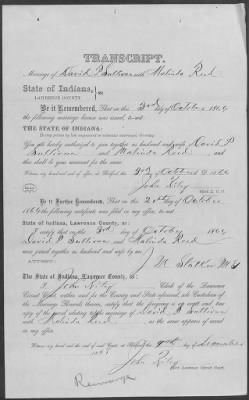 TRANSCRIPT.
Marriage of David P Sullivan with Malinda Reed
State of Indiana,
LAWRENCE COUNTY
ss
Be it Remembered, That on this 3rd day of October 186
the following marriage license was issued, to-wit:
THE STATE OF INDIANA:
To any person by law empowered to solemnize marriages, Greeting:
You are hereby authorized to join together as husband and wife David P
Sullivan and Malinda Reed and
this shall be your warrant for the same.
Witness, my hand and seal of office, at Bedford October 3
John Riley
Be it Further Remembered, That on this day of October
186 the following certificate was filed in my office, to-wit:
State of Indiana, Lawrence County, ss:
I certify that on the 3rd day of October 186
David P Sullivan and Malinda Reed
were joined together as husband and wife by me.
ATTEST:
J M Stalker MG
The State of Indiana, Lawrence County, ss:
I, John Riley Clerk of the Lawrence
Circuit Court within and for the County and State aforesaid, and Custodian of
the Marriage Record thereof, certify that the foregoing is a copy and true
copy of the record relating to the marriage of David P Sullivan
with Malinda Reed as the same appears of record
in my office.
Witness my hand and the seal of said Court, at Bedford, day of December
186
John Riley
Clerk Lawrence Circuit Court.